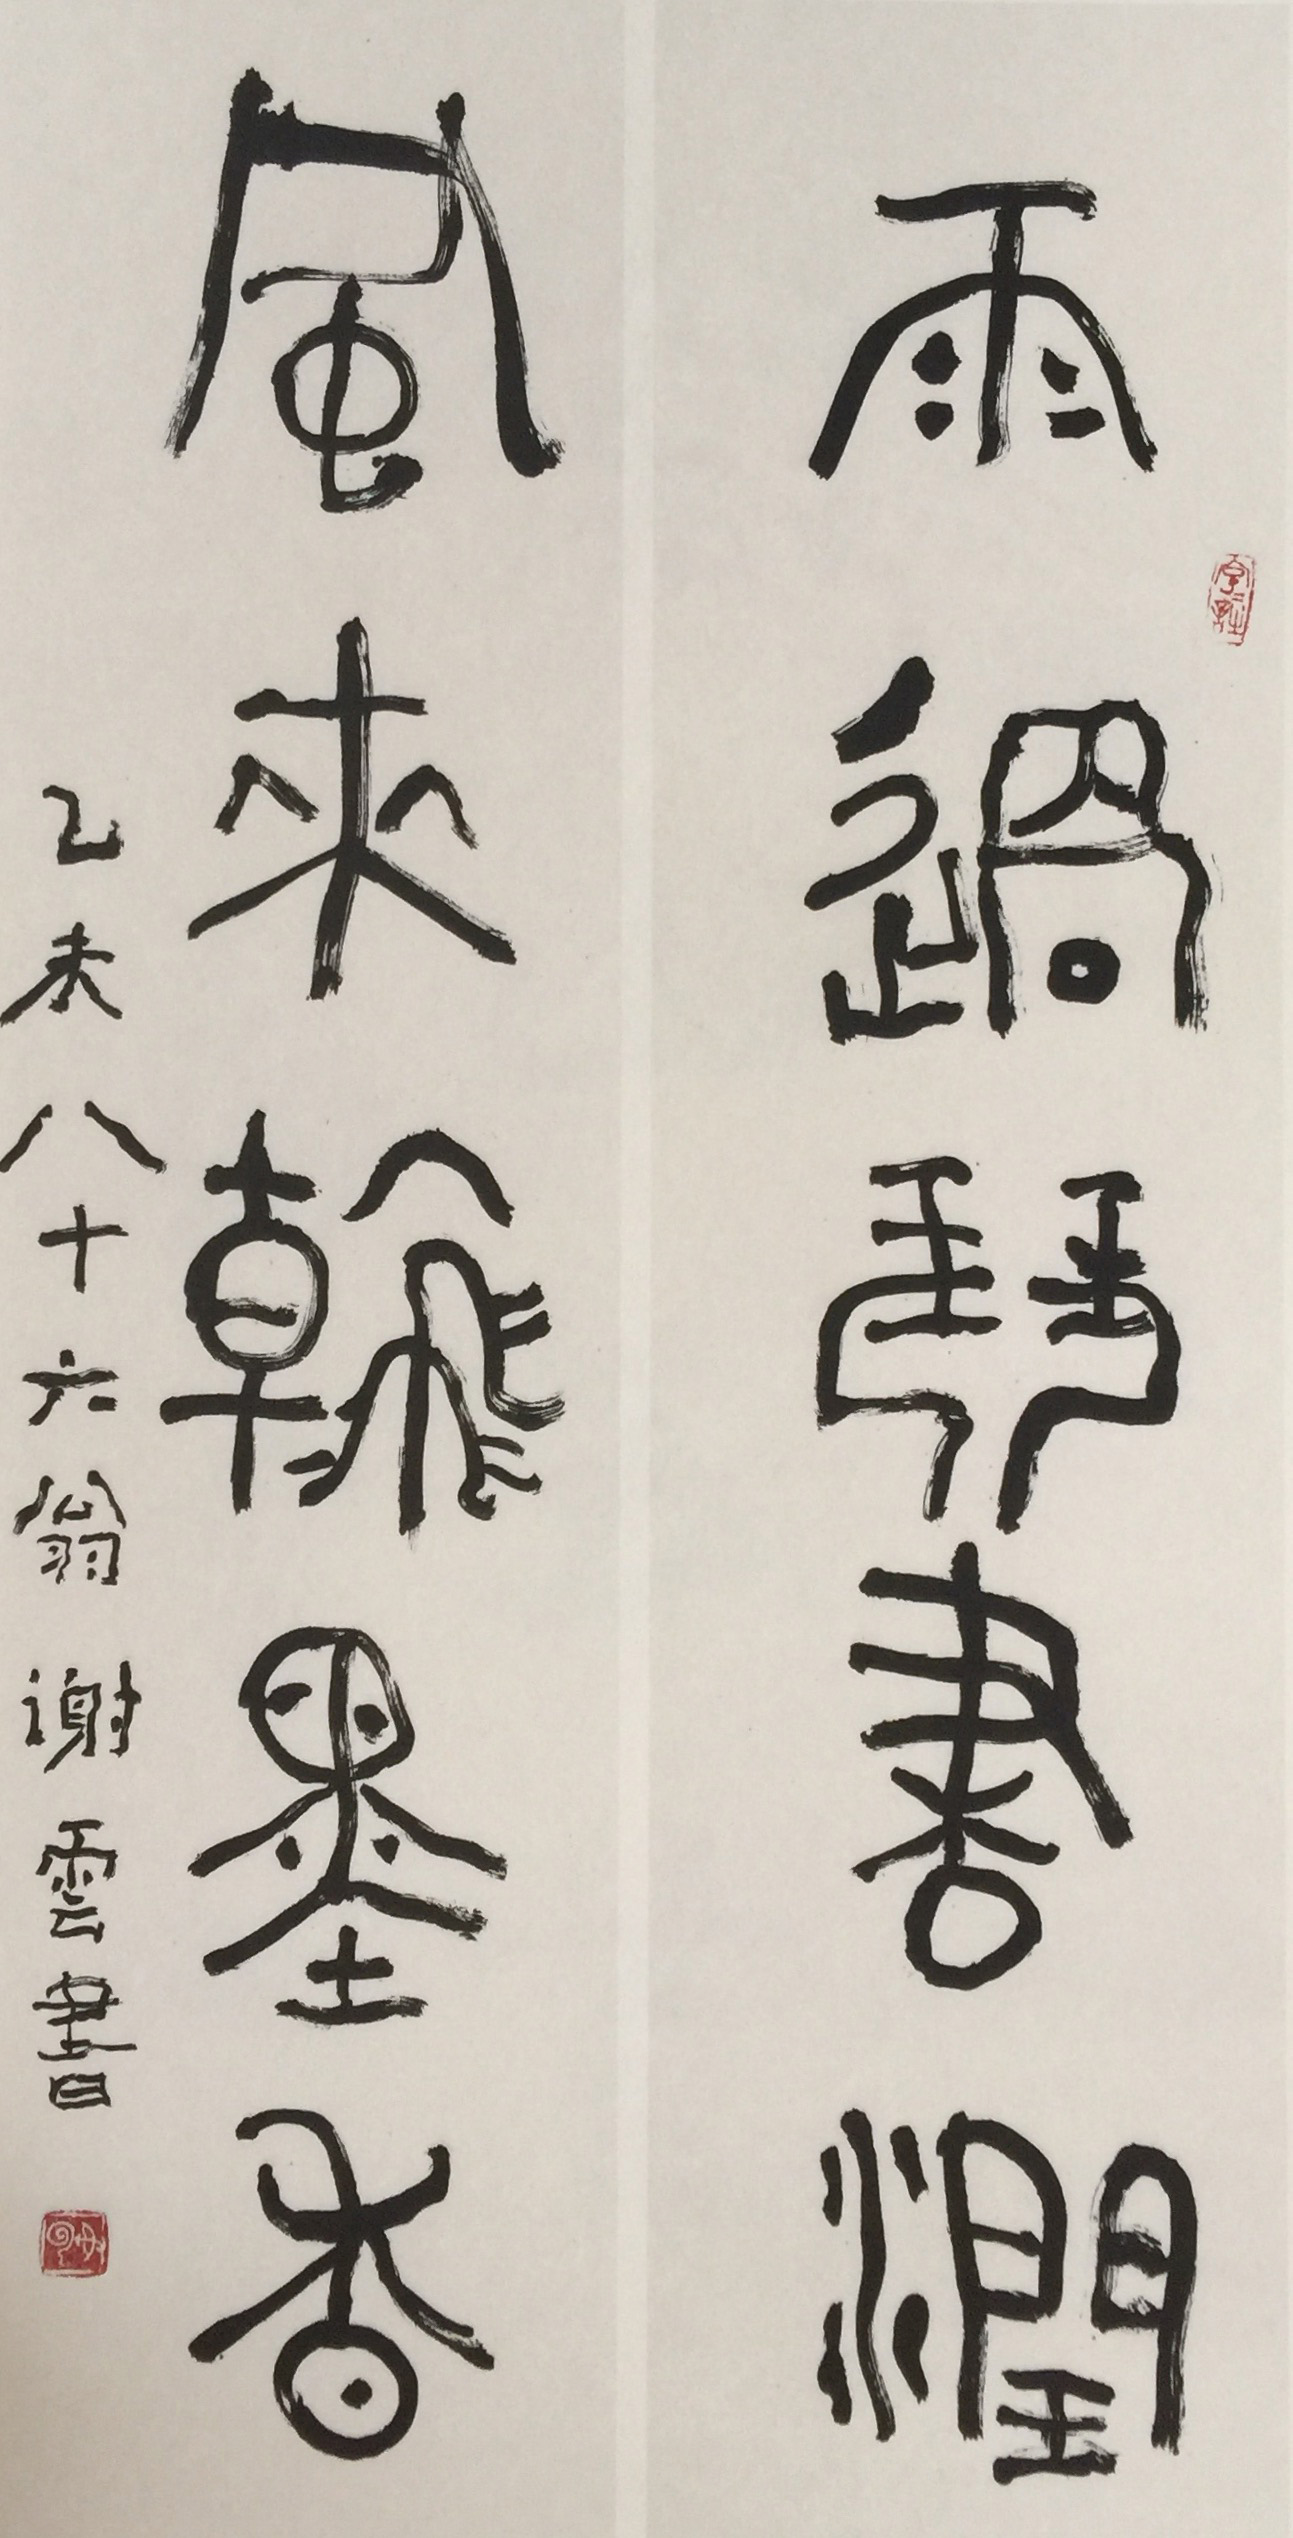 雨過琴書潤
風來翰墨香
乙未八十六翁謝雲書